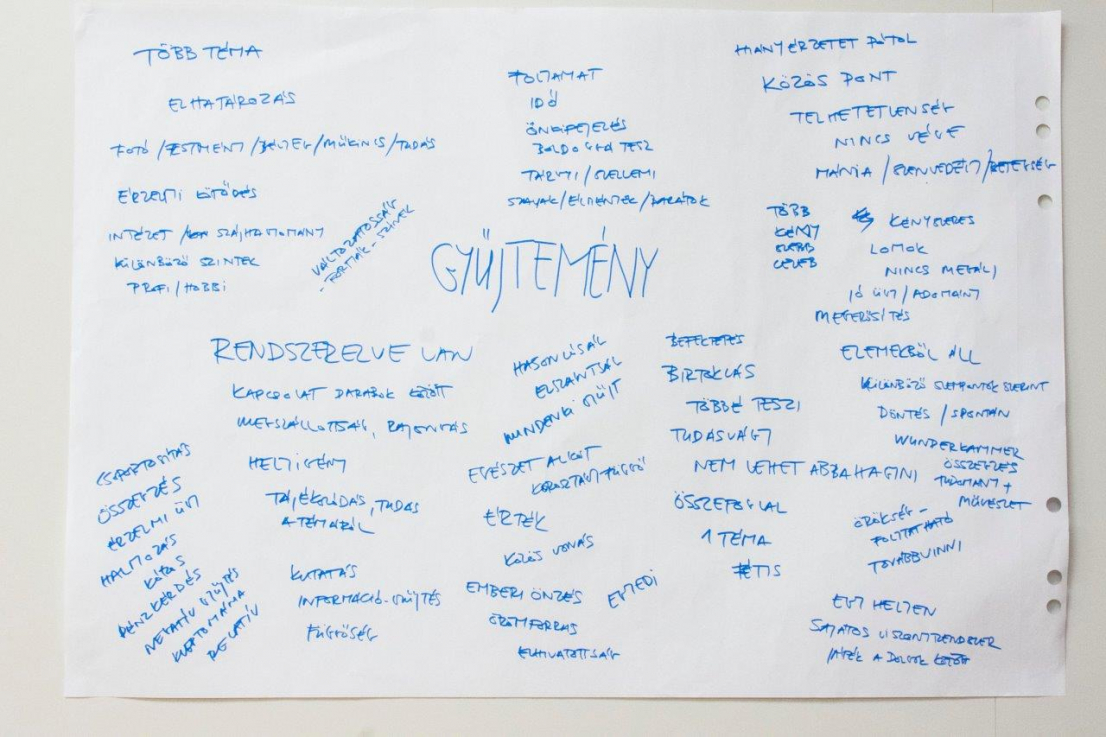 TÖBB TÉMA
ELHATÁROZÁS
FOTÓ / FESTMÉNY / BÉLYEG / MŰKINCS / TUDÁS
ÉRZELMI KÖTŐDÉS
INTÉZET / SZÁJHAGYOMÁNY
KÜLÖNBÖZŐ SZINTEK
PROFI / HOBBI
VÁLTOZATOSSÁG
- FORMÁK - SZÍNEK
FOLYAMAT
IDŐ
ÖNKIFEJEZÉS
BOLDOGGÁ TESZ
TÁRGYI / SZELLEMI
SZAVAK / ÉLMÉNYEK / BARÁTOK
GYŰJTEMÉNY
HIÁNYÉRZETET PÓTOL
KÖZÖS PONT
TELHETETLENSÉG
NINCS VÉGE
MÁNIA / SZENVEDÉLY / BETEGSÉG
TÖBB
KÉNYSZERES
LOMOK
NINCS MEGÁLJ
JÓ ÜGY / ADOMÁNY
MEGERŐSÍTÉS
RENDSZEREZVE VAN
KAPCSOLAT DARABOK KÖZÖTT
MEGSZÁLLOTTSÁG, RAJONGÁS
HELYIGÉNY
TÁJÉKOZÓDÁS, TUDÁS
A TÉMÁRÓL
KUTATÁS
INFORMÁCIÓ-GYŰJTÉS
FÜGGŐSÉG
CSOPORTOSÍTÁS
ÖSSZEGZÉS
ÉRZELMI ÜGY
HALMOZÁS
PÉNZKÉRDÉS
NEGATÍV GYŰJTÉS
KLEPTOMÁNIA
RELATÍV
HASONLÓSÁG
ELSZÁNTSÁG
MINDENKI GYŰJT
EGÉSZET ALKOT
KOROSZTÁLYFÜGGŐ
ÉRTÉK
KÖZÖS VONÁS
EMBERI ÖNZÉS
EGYEDI
ÖRÖMFORRÁS
ELHIVATOTTSÁG
BEFEKTETÉS
BIRTOKLÁS
TÖBBÉ TESZI
TUDÁSVÁGY
NEM LEHET ABBAHAGYNI
ÖSSZEFOGLAL
1 TÉMA
FÉTIS
ELEMEKBŐL ÁLL
KÜLÖNBÖZŐ SZEMPONTOK SZERINT
DÖNTÉS / SPONTÁN
WUNDERKAMMER
ÖSSZEGZÉS
TUDOMÁNY +
MŰVÉSZET
ÖRÖKSÉG -
FOLYTATHATÓ
TOVÁBBVINNI
EGY HELYEN
SAJÁTOS VISZONYRENDSZER
JÁTÉK A DOLGOK KÖZÖTT